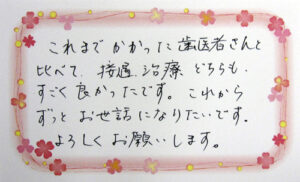 これまで かかった 歯医者さんと
比べて、接遇、治療、どちらも、
すごく 良かったです。これから
ずっと お世話に なりたいです。
よろしく お願いします。